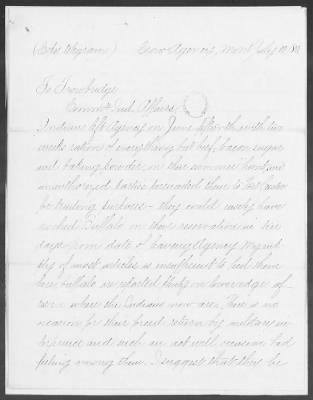 (Copy telegram) Crow Agency, Mont July 10 '80
To Trowbridge
Comm'r Ind. Affairs
Indians left Agency on June with two
weeks rations of everything but beef, bacon sugar
and baking powder, on their summer hunt, and
unauthorized parties persuaded them to Fort Custer
for trading purposes – they could easily have
reached Buffalo on their reservation in five
days from date of leaving Agency. My
sply of most articles is insufficient to feed them
here, buffalo are reported thick on lower edge of
reserve where the Indians now are. There is no
reason for their forced return by military in
my presence and such an act will occasion bad
feeling among them. I suggest that they be